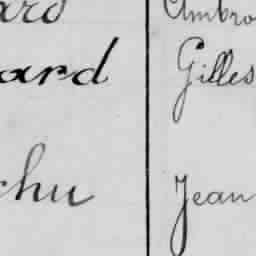 ard Ambro
ard Gilles
chu Jean